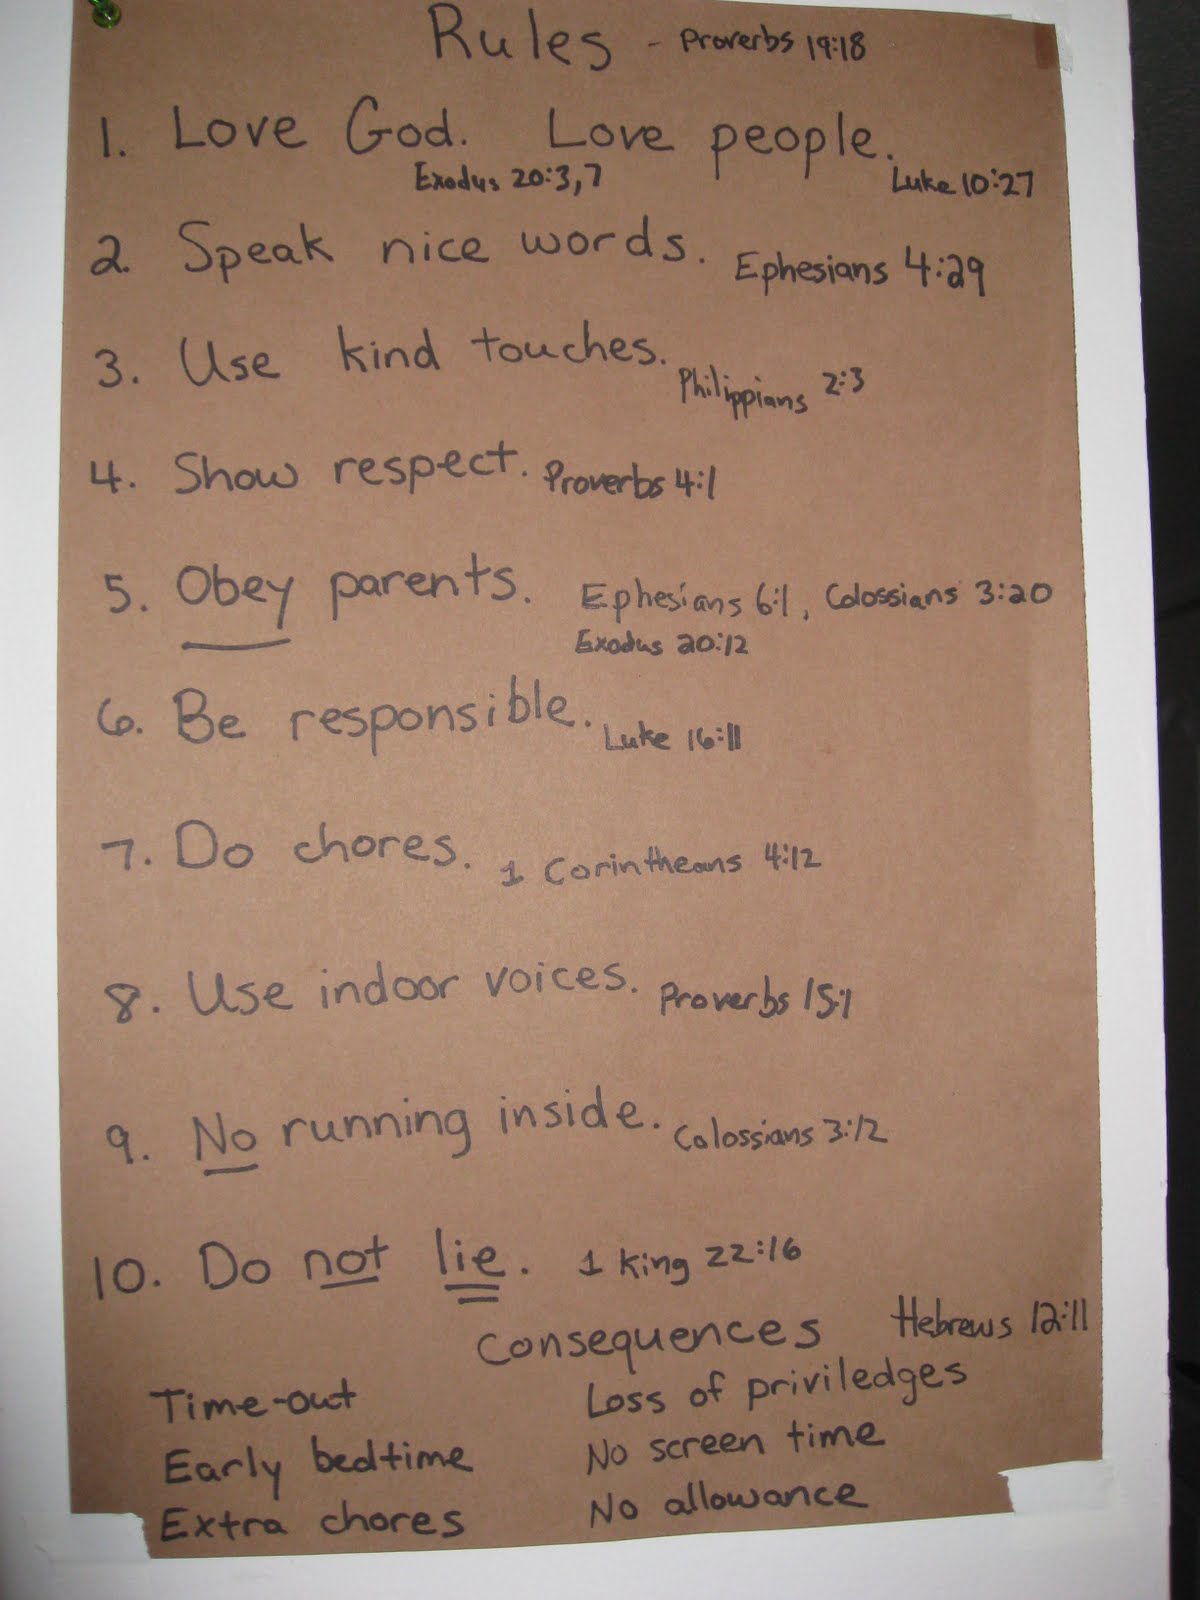 Rules - Proverbs 19:18
1. Love God. Love people.
Exodus 20:3,7 Luke 10:27
2. Speak nice words. Ephesians 4:29
3. Use kind touches. Philippians 2:3
4. Show respect. Proverbs 4:1
5. Obey parents. Ephesians 6:1, Colossians 3:20
Exodus 20:12
6. Be responsible. Luke 16:11
7. Do chores. 1 Corintheans 4:12
8. Use indoor voices. Proverbs 15:1
9. No running inside. Colossians 3:12
10. Do not lie. 1 king 22:16
Consequences Hebrews 12:11
Time-out Loss of priviledges
Early bedtime No screen time
Extra chores No allowance